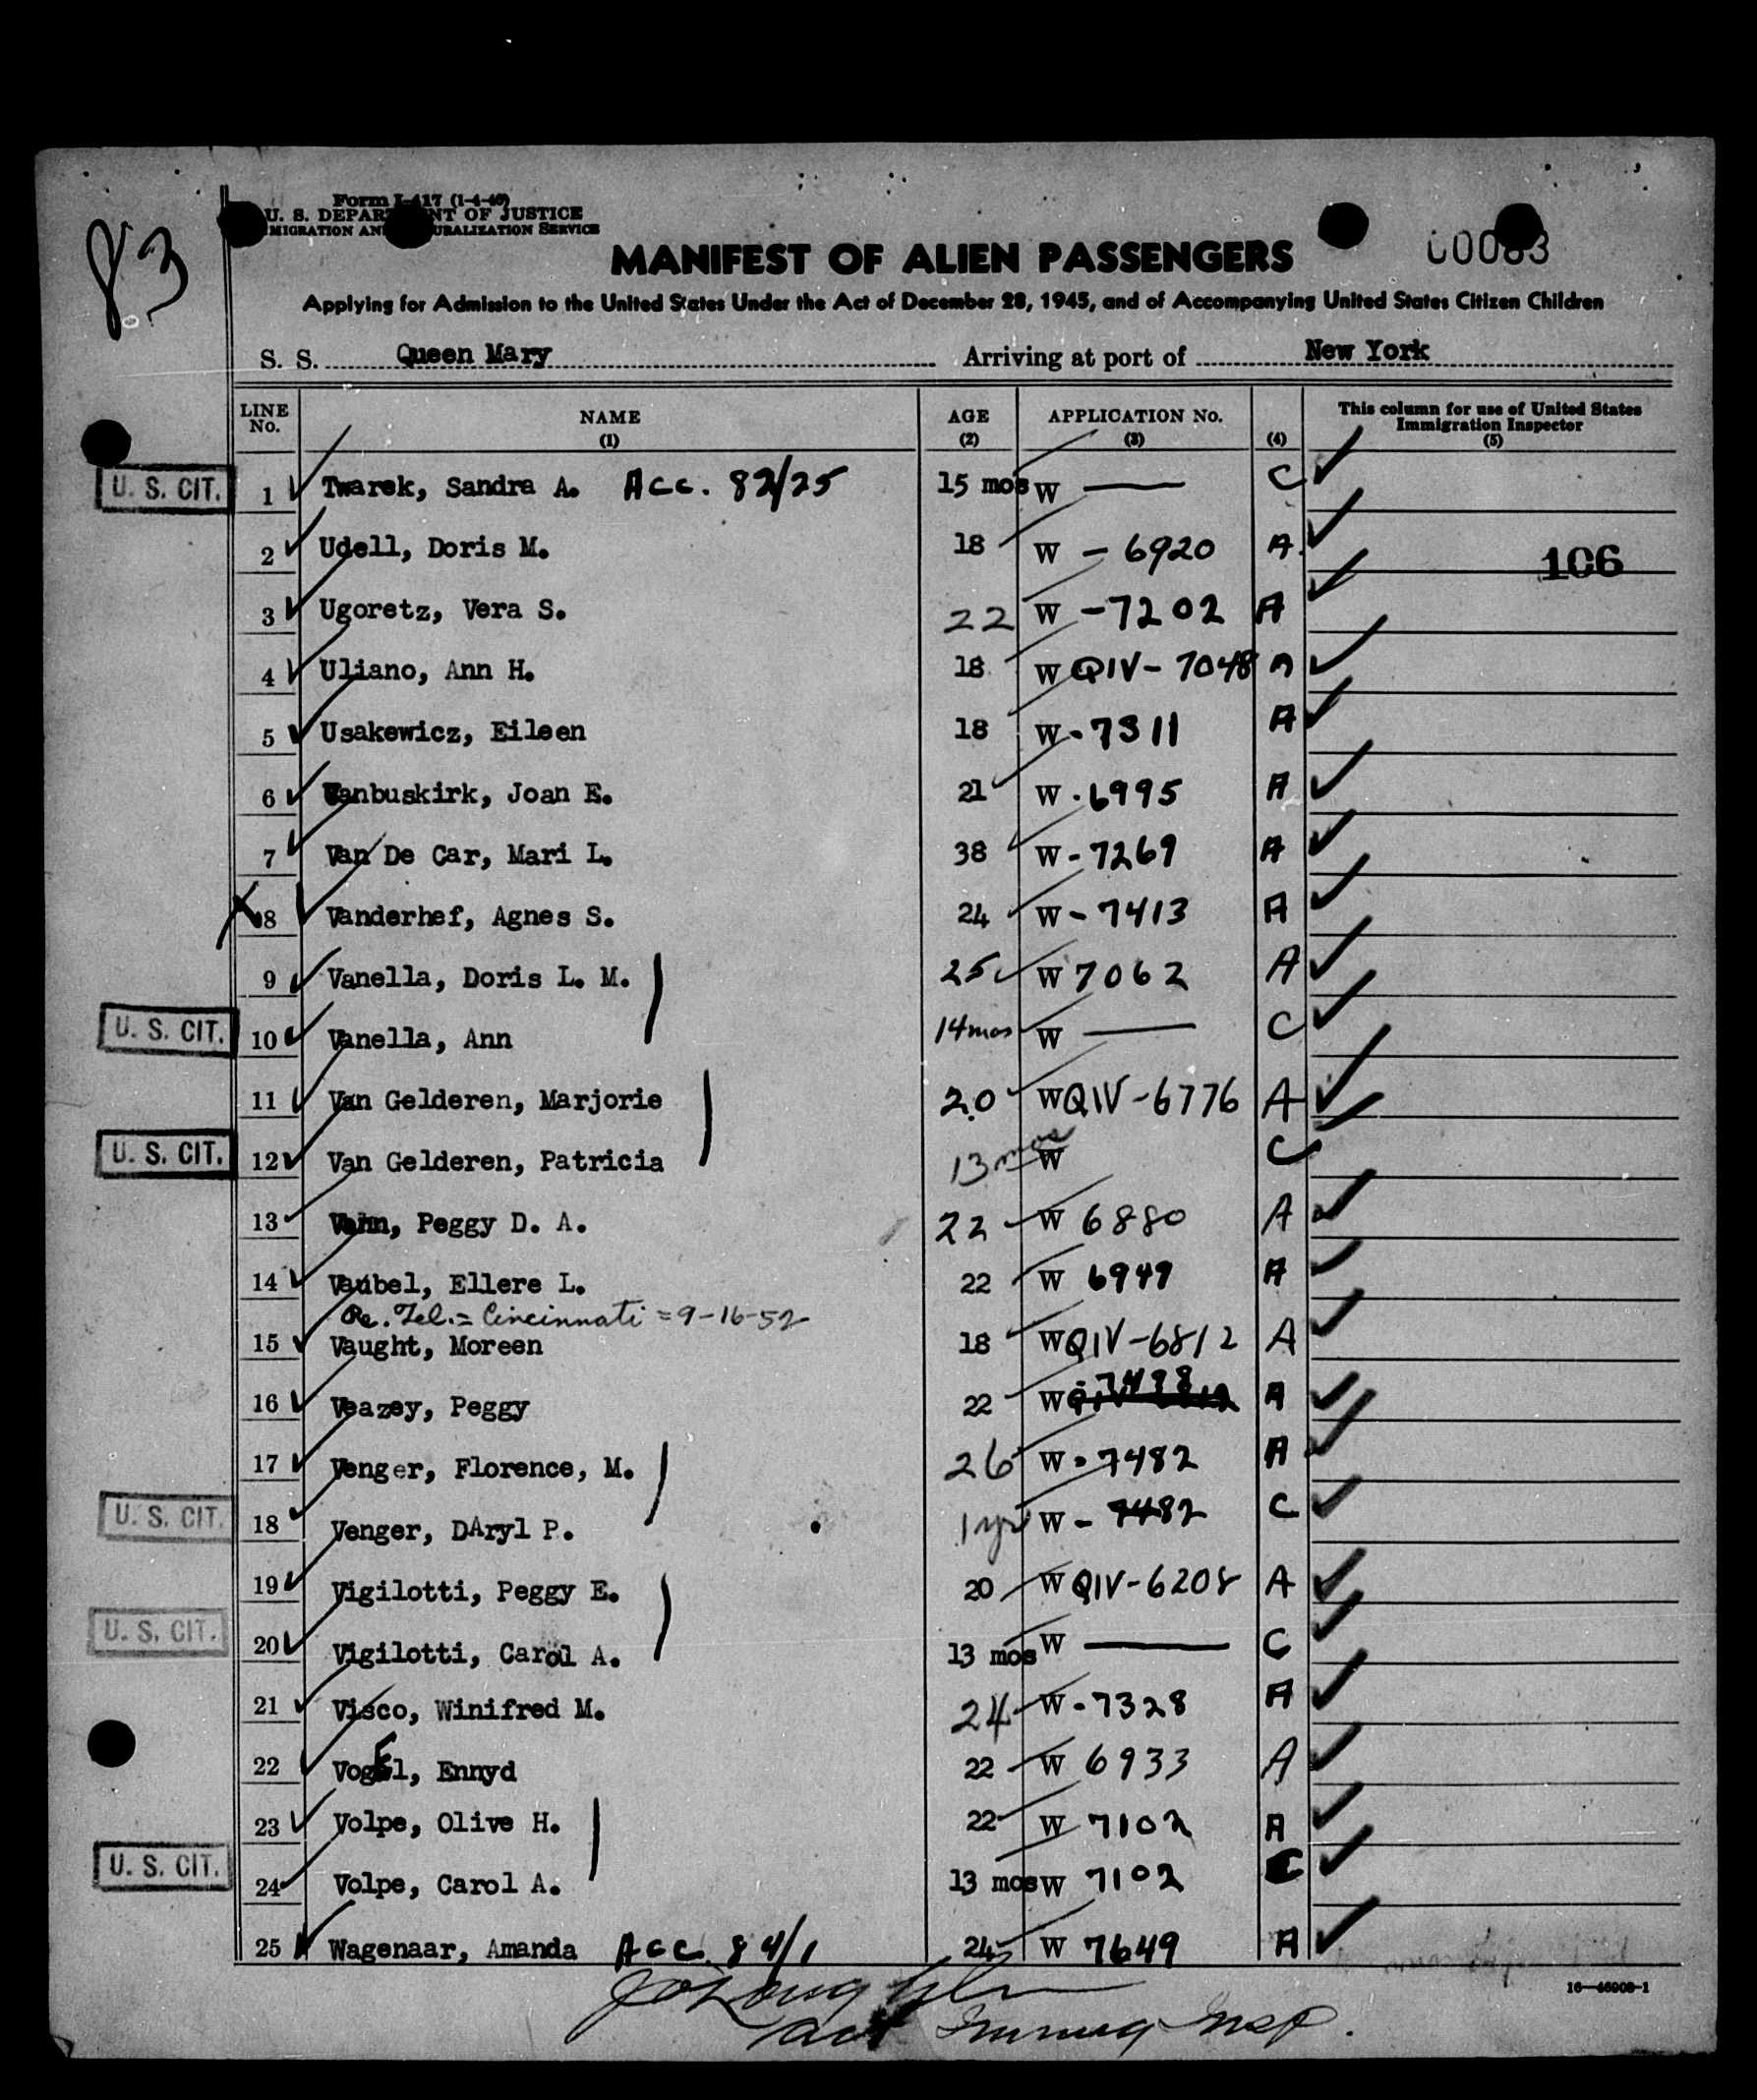 83
Form I-417 (1-4-46)
U. S. DEPARTMENT OF JUSTICE
IMMIGRATION AND NATURALIZATION SERVICE
MANIFEST OF ALIEN PASSENGERS 00083
Applying for Admission to the United States Under the Act of December 28, 1945, and of Accompanying United States Citizen Children
S. S. Queen Mary Arriving at port of New York
LINE No. NAME (1) AGE (2) APPLICATION No. (3) (4) This column for use of United States Immigration Inspector (5)
U. S. CIT. 1 Twarek, Sandra A. Acc. 82/25 15 mos W — C
2 Udell, Doris M. 18 W - 6920 A 106
3 Ugoretz, Vera S. 22 W - 7202 A
4 Uliano, Ann H. 18 W QIV - 7048 A
5 Usakewicz, Eileen 18 W - 7311 A
6 Vanbuskirk, Joan E. 21 W - 6995 A
7 Van De Car, Mari L. 38 W - 7269 A
X 8 Vanderhef, Agnes S. 24 W - 7413 A
9 Vanella, Doris L. M. 25 W 7062 A
U. S. CIT. 10 Vanella, Ann 14 mos W — C
11 Van Gelderen, Marjorie 20 W QIV - 6776 A
U. S. CIT. 12 Van Gelderen, Patricia 13 mos W C
13 Peggy D. A. 22 W 6880 A
14 Vaubel, Ellere L. 22 W 6949 A
Re. Tel. = Cincinnati = 9-16-52
15 Vaught, Moreen 18 W QIV - 6812 A
16 Veazey, Peggy 22 W - 7498 A
17 Venger, Florence, M. 26 W - 7482 A
U. S. CIT. 18 Venger, DAryl P. 1 yr W - 7482 C
19 Vigilotti, Peggy E. 20 W QIV - 6208 A
U. S. CIT. 20 Vigilotti, Carol A. 13 mos W — C
21 Visco, Winifred M. 24 W - 7328 A
22 VogEl, Ennyd 22 W 6933 A
23 Volpe, Olive H. 22 W 7102 A
U. S. CIT. 24 Volpe, Carol A. 13 mos W 7102 C
25 Wagenaar, Amanda Acc. 84/1 24 W 7649 A
16—46908-1
act Immig Insp.